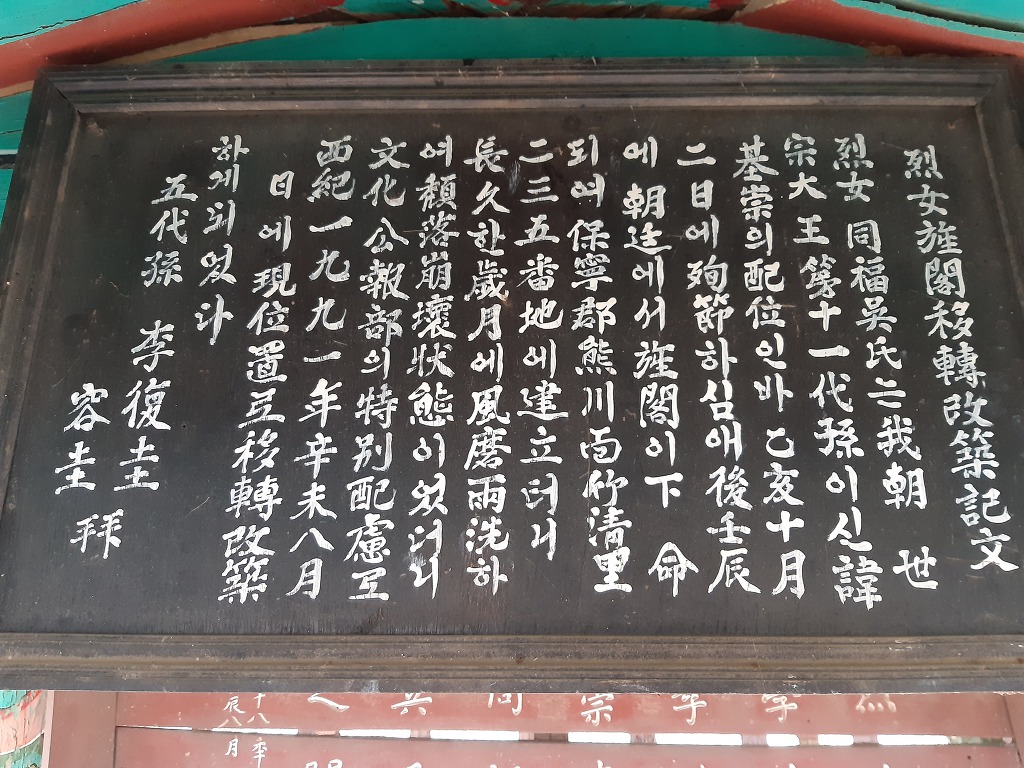 烈女旌閣移轉改築記文
烈女 同福吳氏는 我朝 世
宗大王 第十一代孫이신 諱
基崇의 配位인바 乙亥十月
二日에 殉節하심애 後壬辰
에 朝廷에서 旌閣이 下 命
되여 保寧郡熊川面竹淸里
二三五番地에 建立되더니
長久한 歲月에 風磨雨洗하
여 頹落崩壞狀態이엇더니
文化公報部의 特別配慮로
西紀一九九一年辛未八月
日에 現位置로 移轉改築
하게 되엿다
五代孫 李復圭
容圭 拜